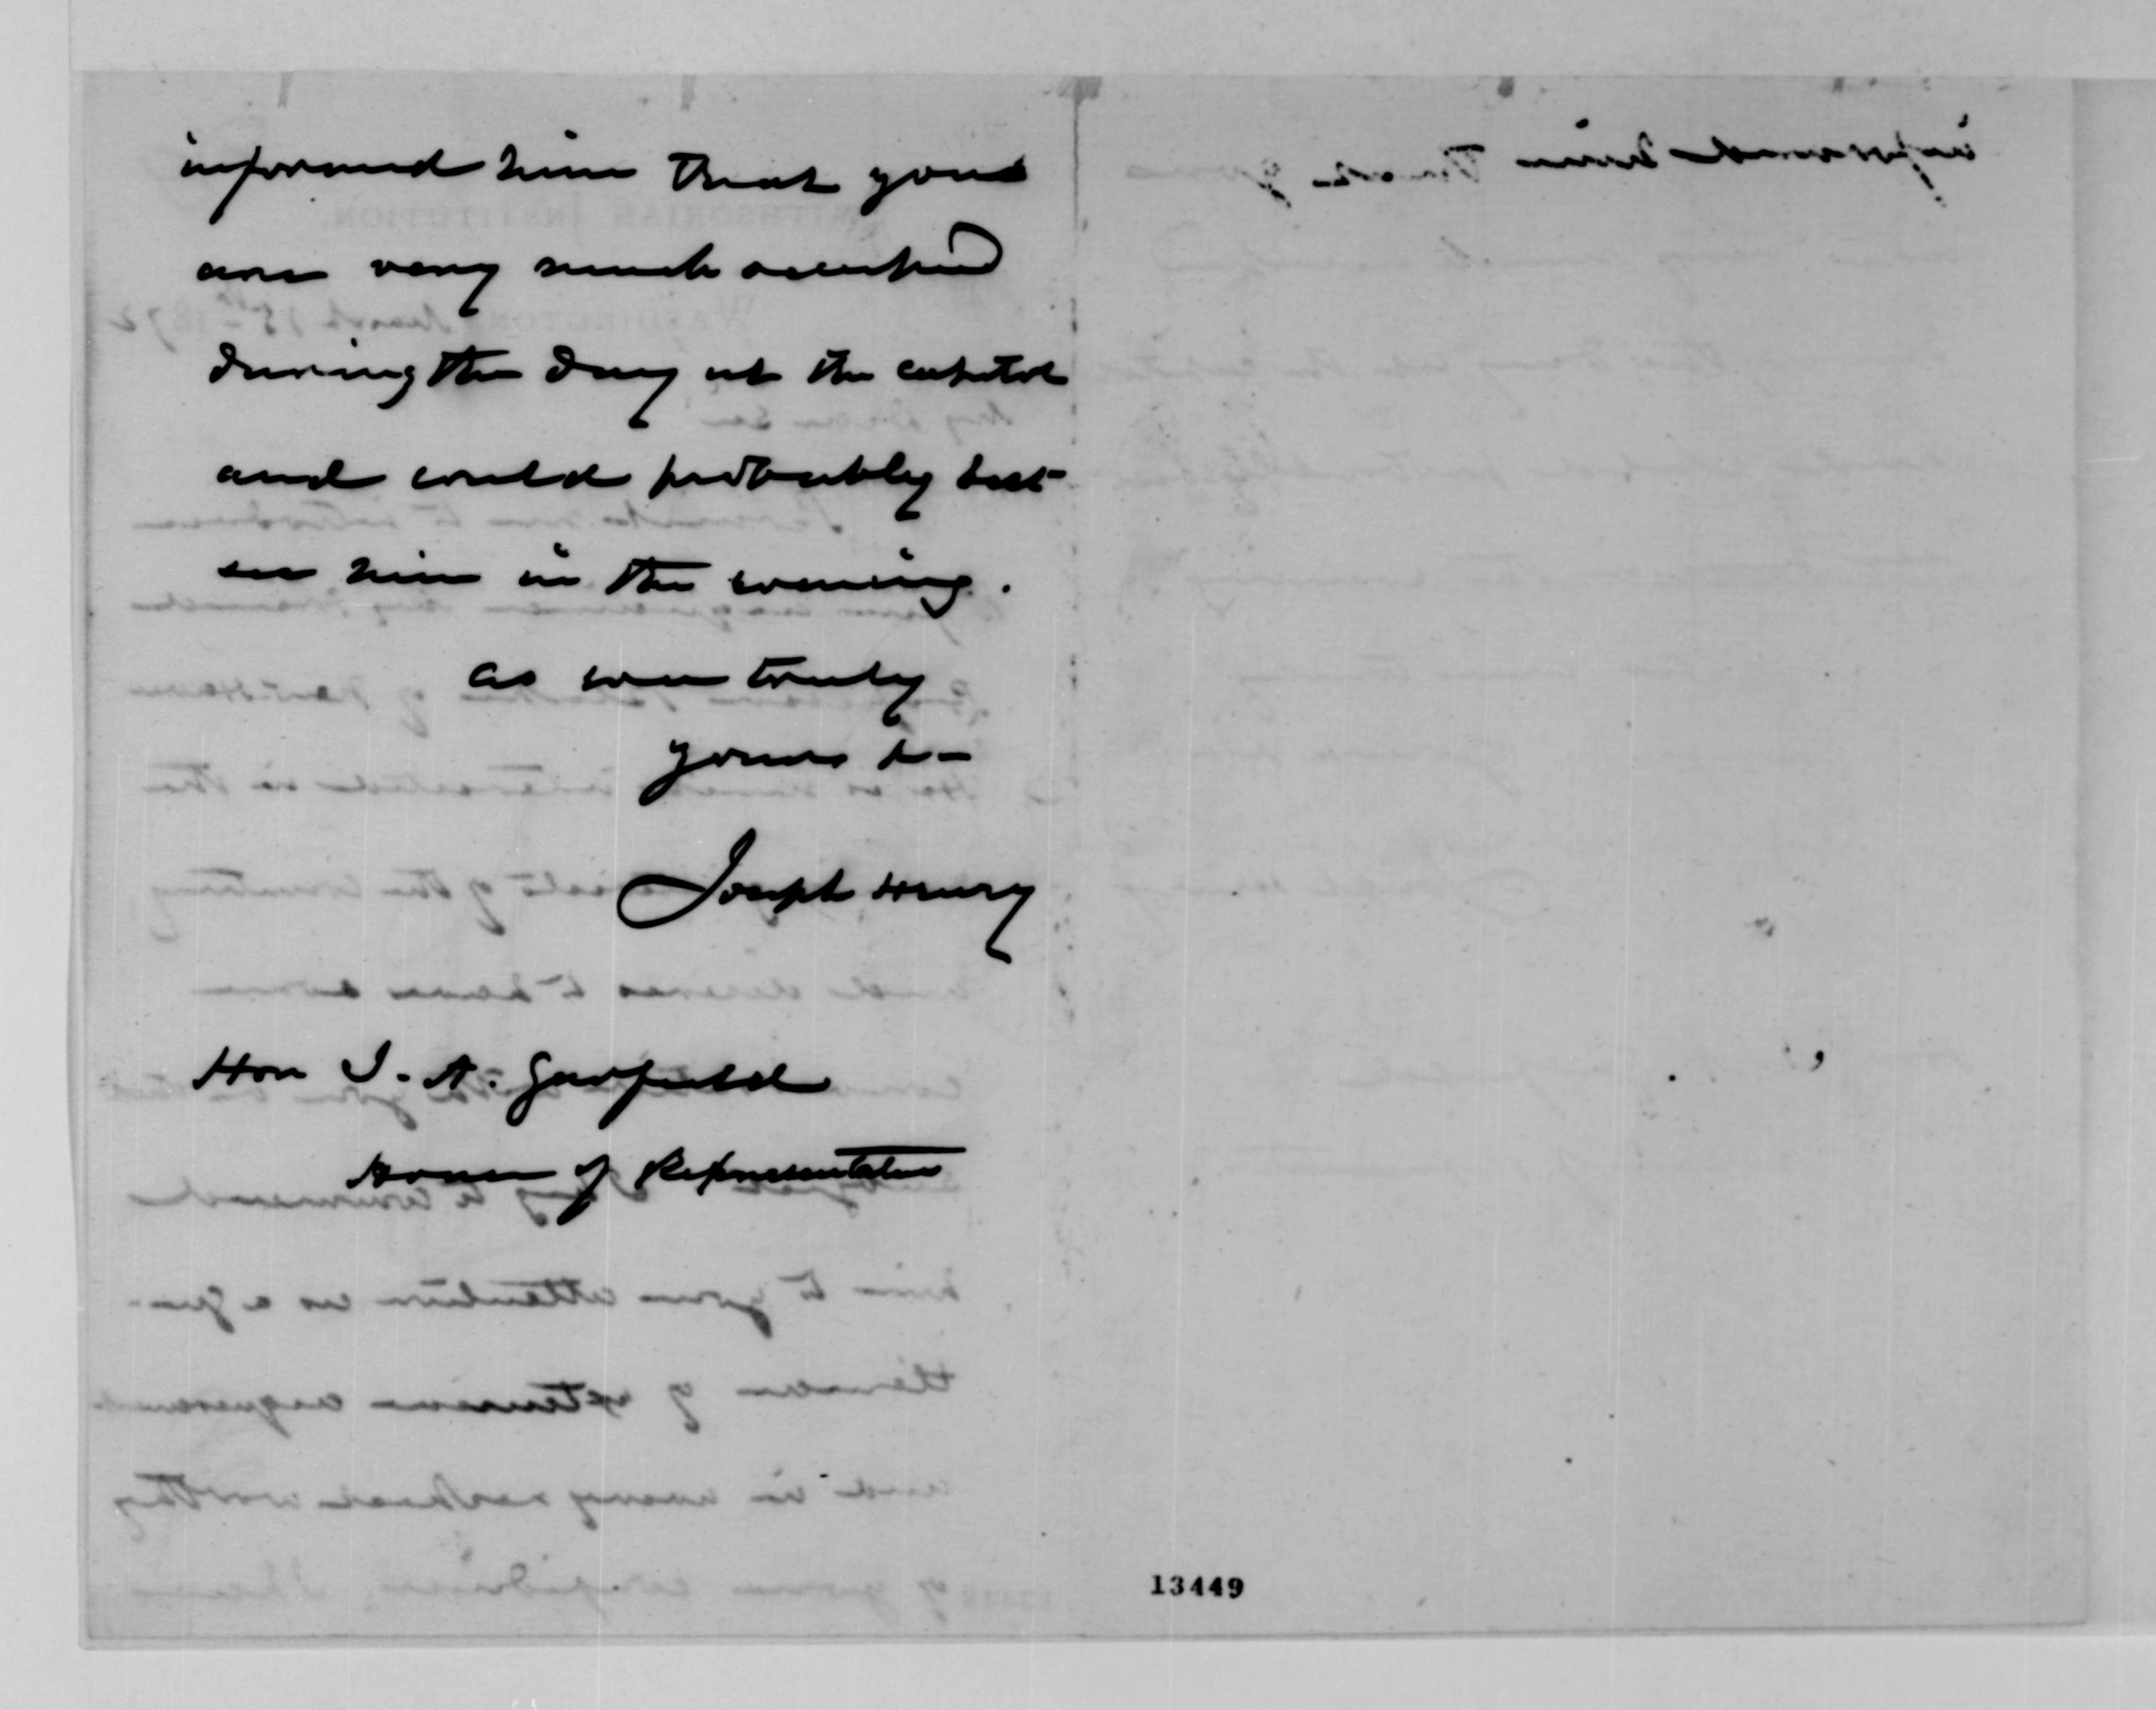 informed him that you
are very much occupied
during the day at the capitol
and could probably best
see him in the evening.
as ever truly
yours &–
Joseph Henry
Hon J. A. Garfield
House of Representatives
13449